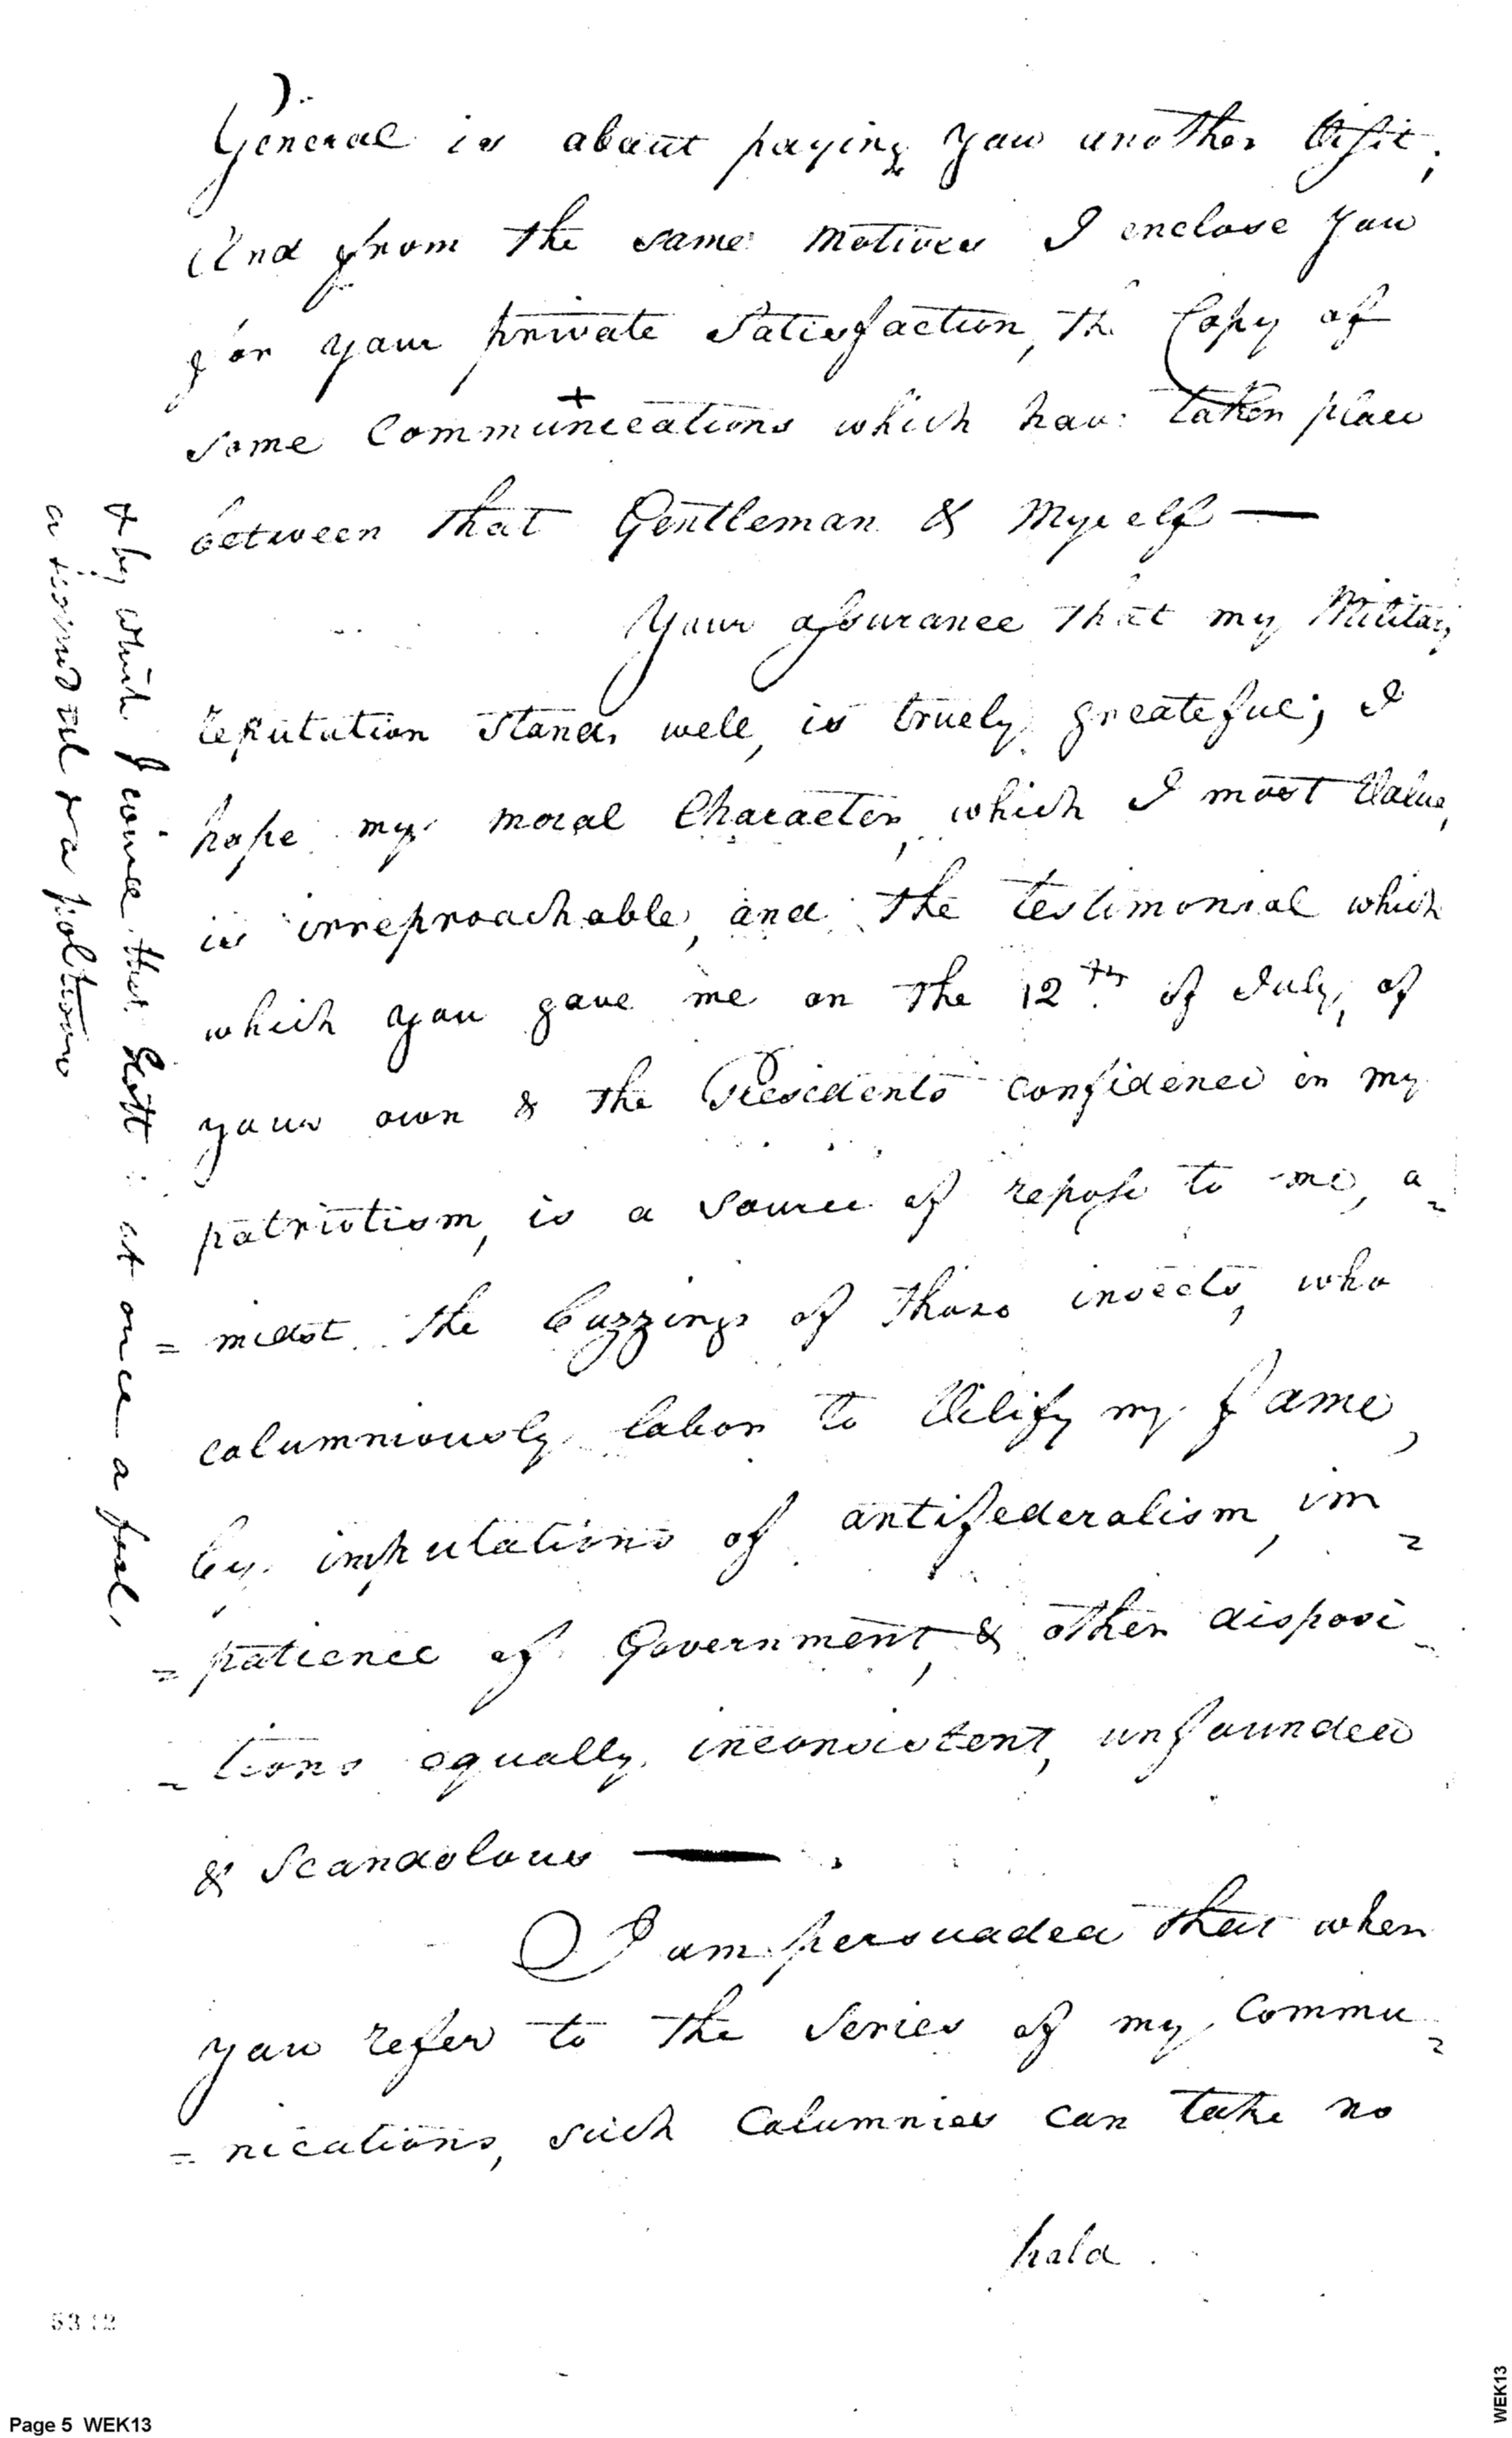 General is about paying you another Visit;
And from the same motives I enclose you
for your private Satisfaction, the Copy of
+
some Communications which have taken place
between that Gentleman & Myself —
Your assurance that my Military
reputation stands well, is truely greateful; I
hope my moral Character, which I most Value,
is irreproachable, and the testimonial which
which you gave me on the 12th. of July, of
your own & the Presidents confidence in my
patriotism, is a source of repose to me, a=
=midst the buzzings of those insects, who
calumniously labor to Vilify my fame,
by imputations of antifederalism, im=
=patience of Government, & other disposi=
=tions equally inconsistent, unfounded
& Scandolous —
I am persuaded that when
you refer to the series of my Commu=
=nications, such Calumnies can take no
hold
+ by which I that Scott is at once a fool,
a scoundrel & a poltroon
5312
Page 5 WEK13
WEK13